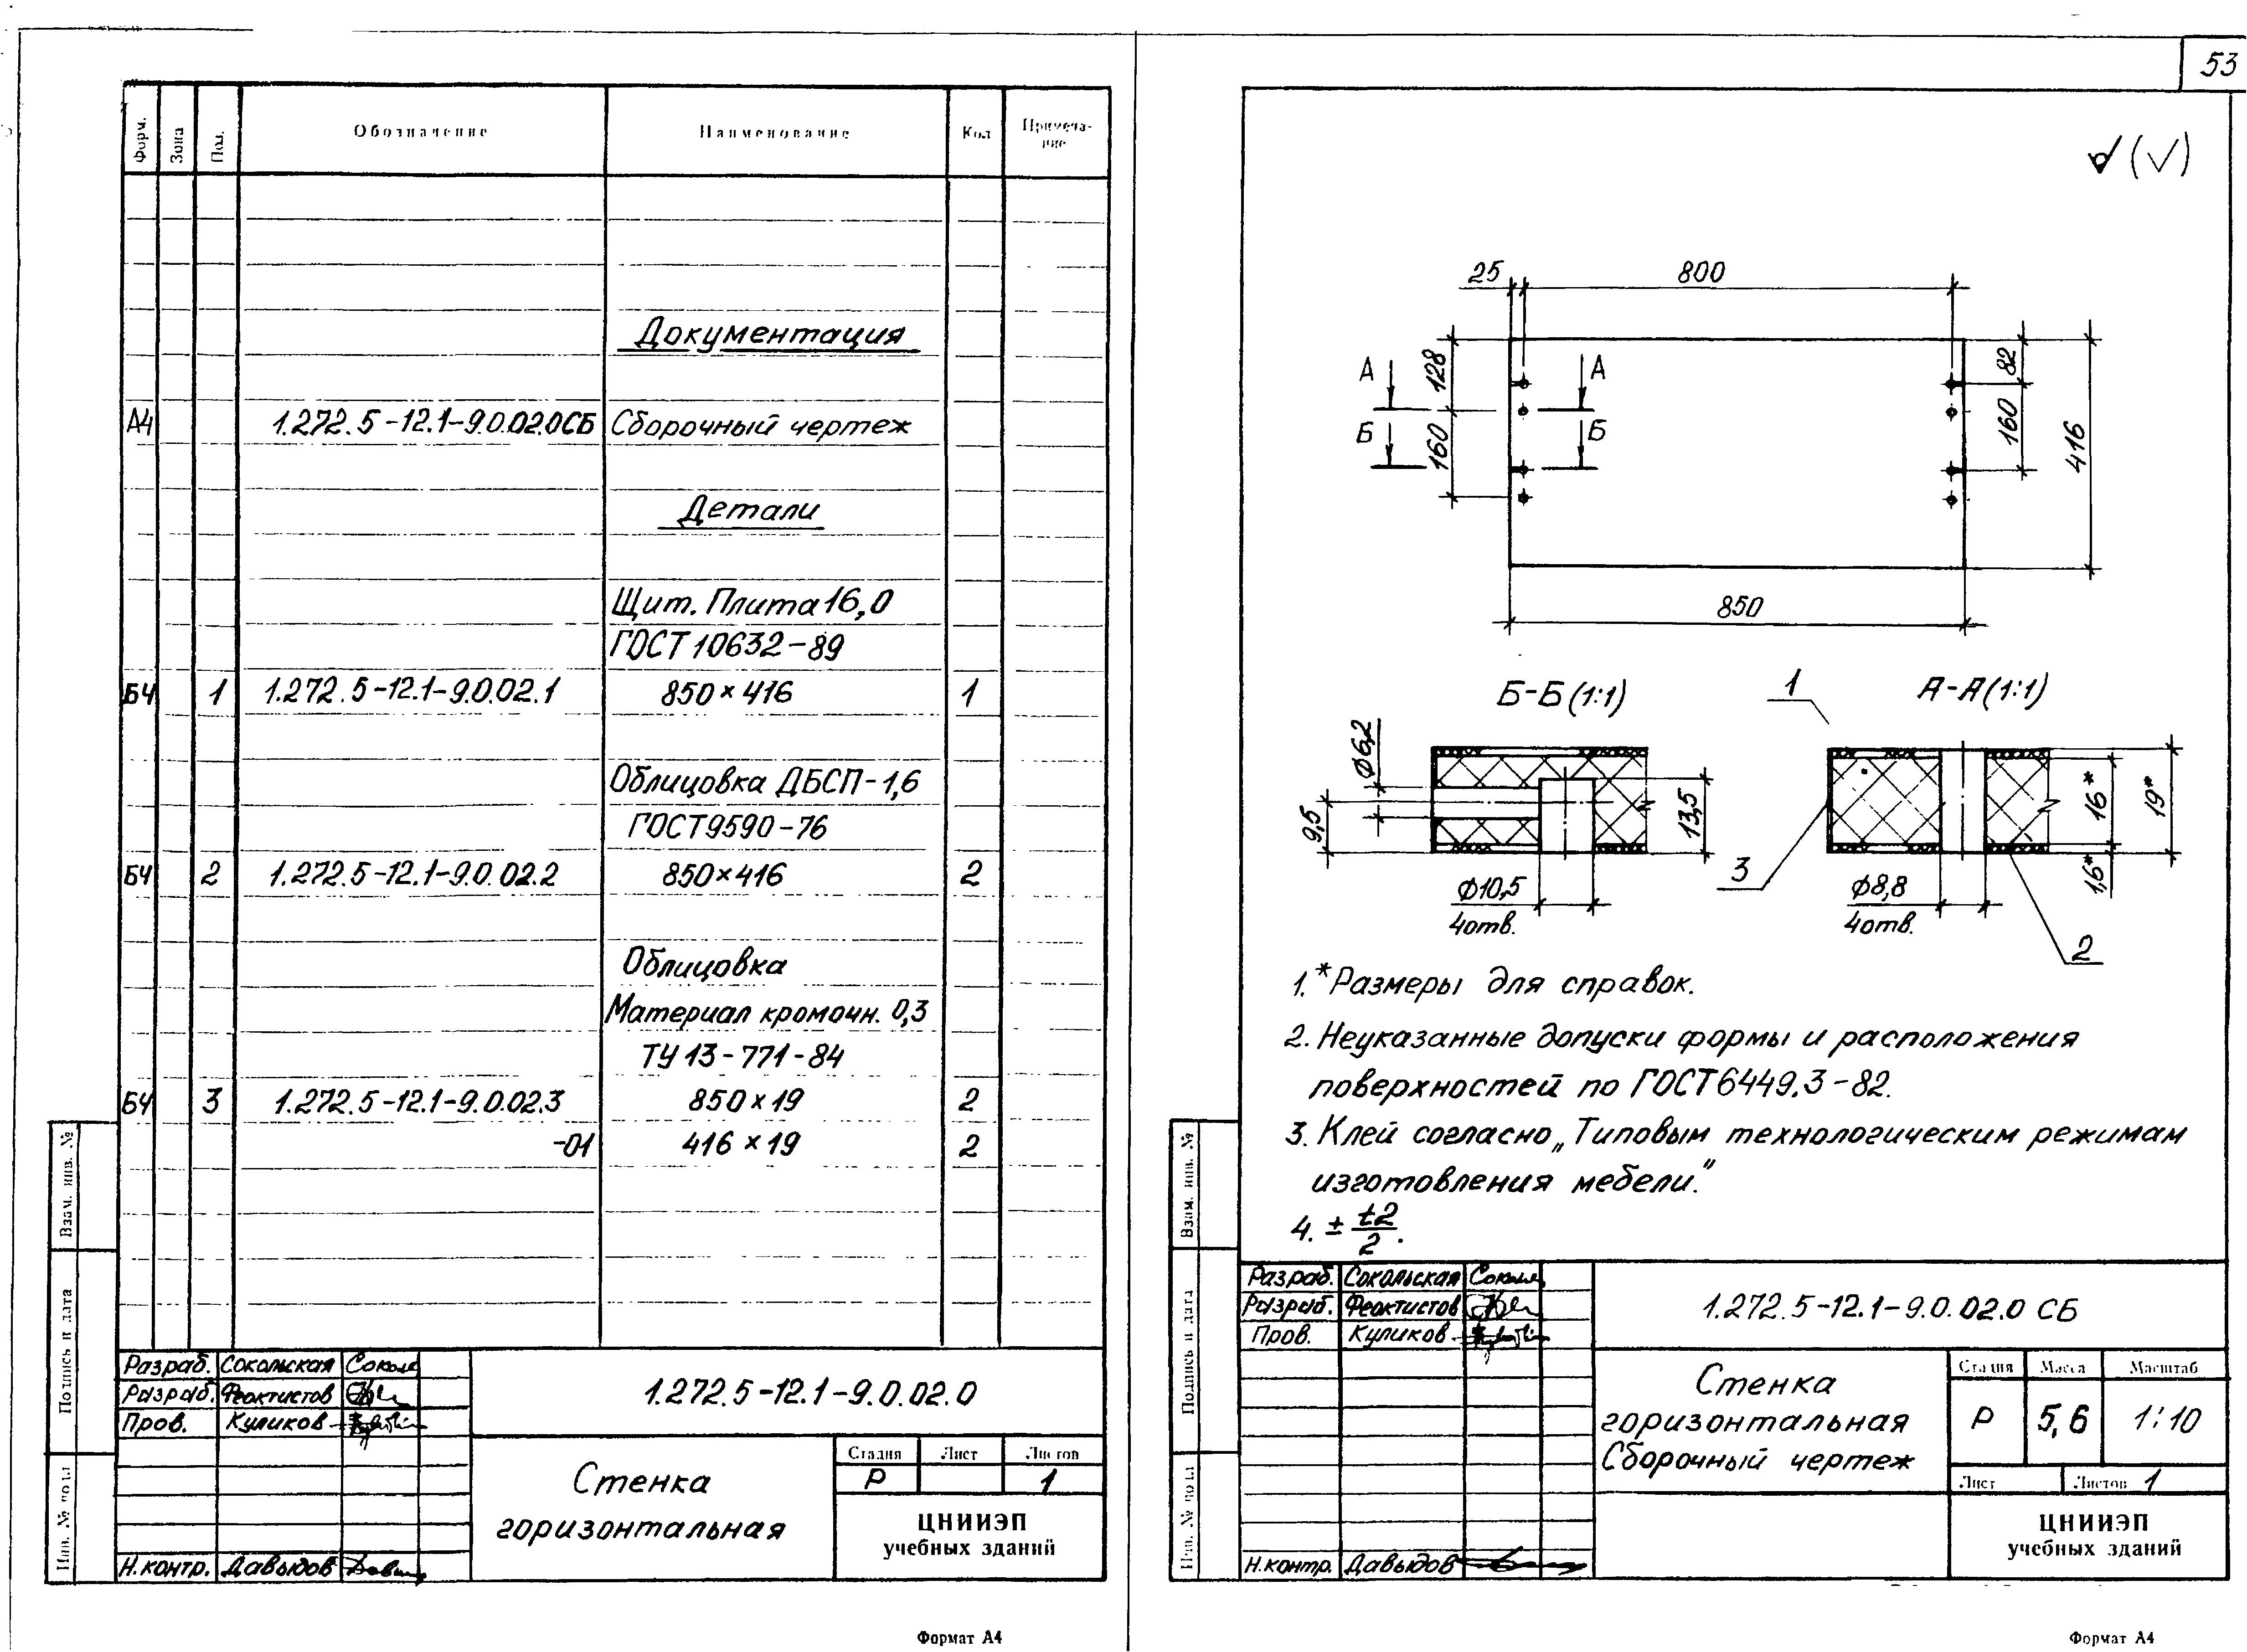 Форм.
Зона
Поз.
Обозначение
Наименование
Кол
Примеча-
ние
Документация
А4 1.272.5-12.1-9.0.02.0СБ Сборочный чертеж
Детали
Щит. Плита 16,0
ГОСТ 10632-89
БЧ 1 1.272.5-12.1-9.0.02.1 850×416 1
Облицовка ДБСП-1,6
ГОСТ 9590-76
БЧ 2 1.272.5-12.1-9.0.02.2 850×416 2
Облицовка
Материал кромочн. 0,3
ТУ 13-771-84
БЧ 3 1.272.5-12.1-9.0.02.3 850×19 2
-01 416×19 2
Взам. инв. №
Подпись и дата
Инв. № подл
Разраб. Сокольская
Разраб. Феоктистов
Пров. Куликов
Н.контр. Давыдов
1.272.5-12.1-9.0.02.0
Стенка
горизонтальная
Стадия Лист Листов
Р 1
ЦНИИЭП
учебных зданий
Формат А4
53
(√)
25 800
128
160
А А
Б Б
82
160
416
850
Б-Б (1:1)
1
А-А (1:1)
Ø6,2
9,5
13,5
Ø10,5
4отв.
3
Ø8,8
4отв.
16*
19*
1,6*
2
1.*Размеры для справок.
2. Неуказанные допуски формы и расположения
поверхностей по ГОСТ 6449.3-82.
3. Клей согласно „Типовым технологическим режимам
изготовления мебели."
4. ± t2/2.
Взам. инв. №
Подпись и дата
Инв. № подл
Разраб. Сокольская
Разраб. Феоктистов
Пров. Куликов
Н.контр. Давыдов
1.272.5-12.1-9.0.02.0 СБ
Стенка
горизонтальная
Сборочный чертеж
Стадия Масса Масштаб
Р 5,6 1:10
Лист Листов 1
ЦНИИЭП
учебных зданий
Формат А4